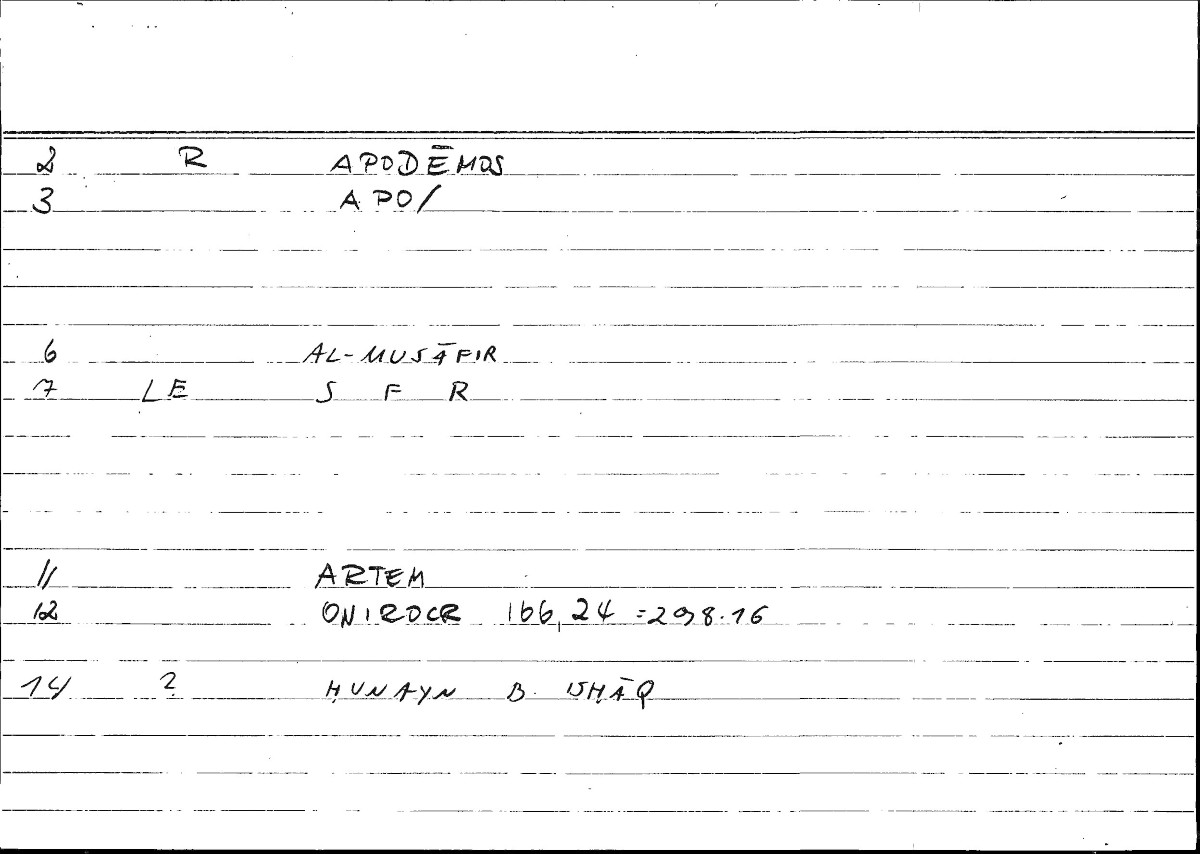 2 R APODĒMOS
3 APO/
6 AL-MUSĀFIR
7 LE S F R
11 ARTEM
12 ONIROCR 166,24 = 298.16
14 ? ḤUNAYN B. ISḤĀQ